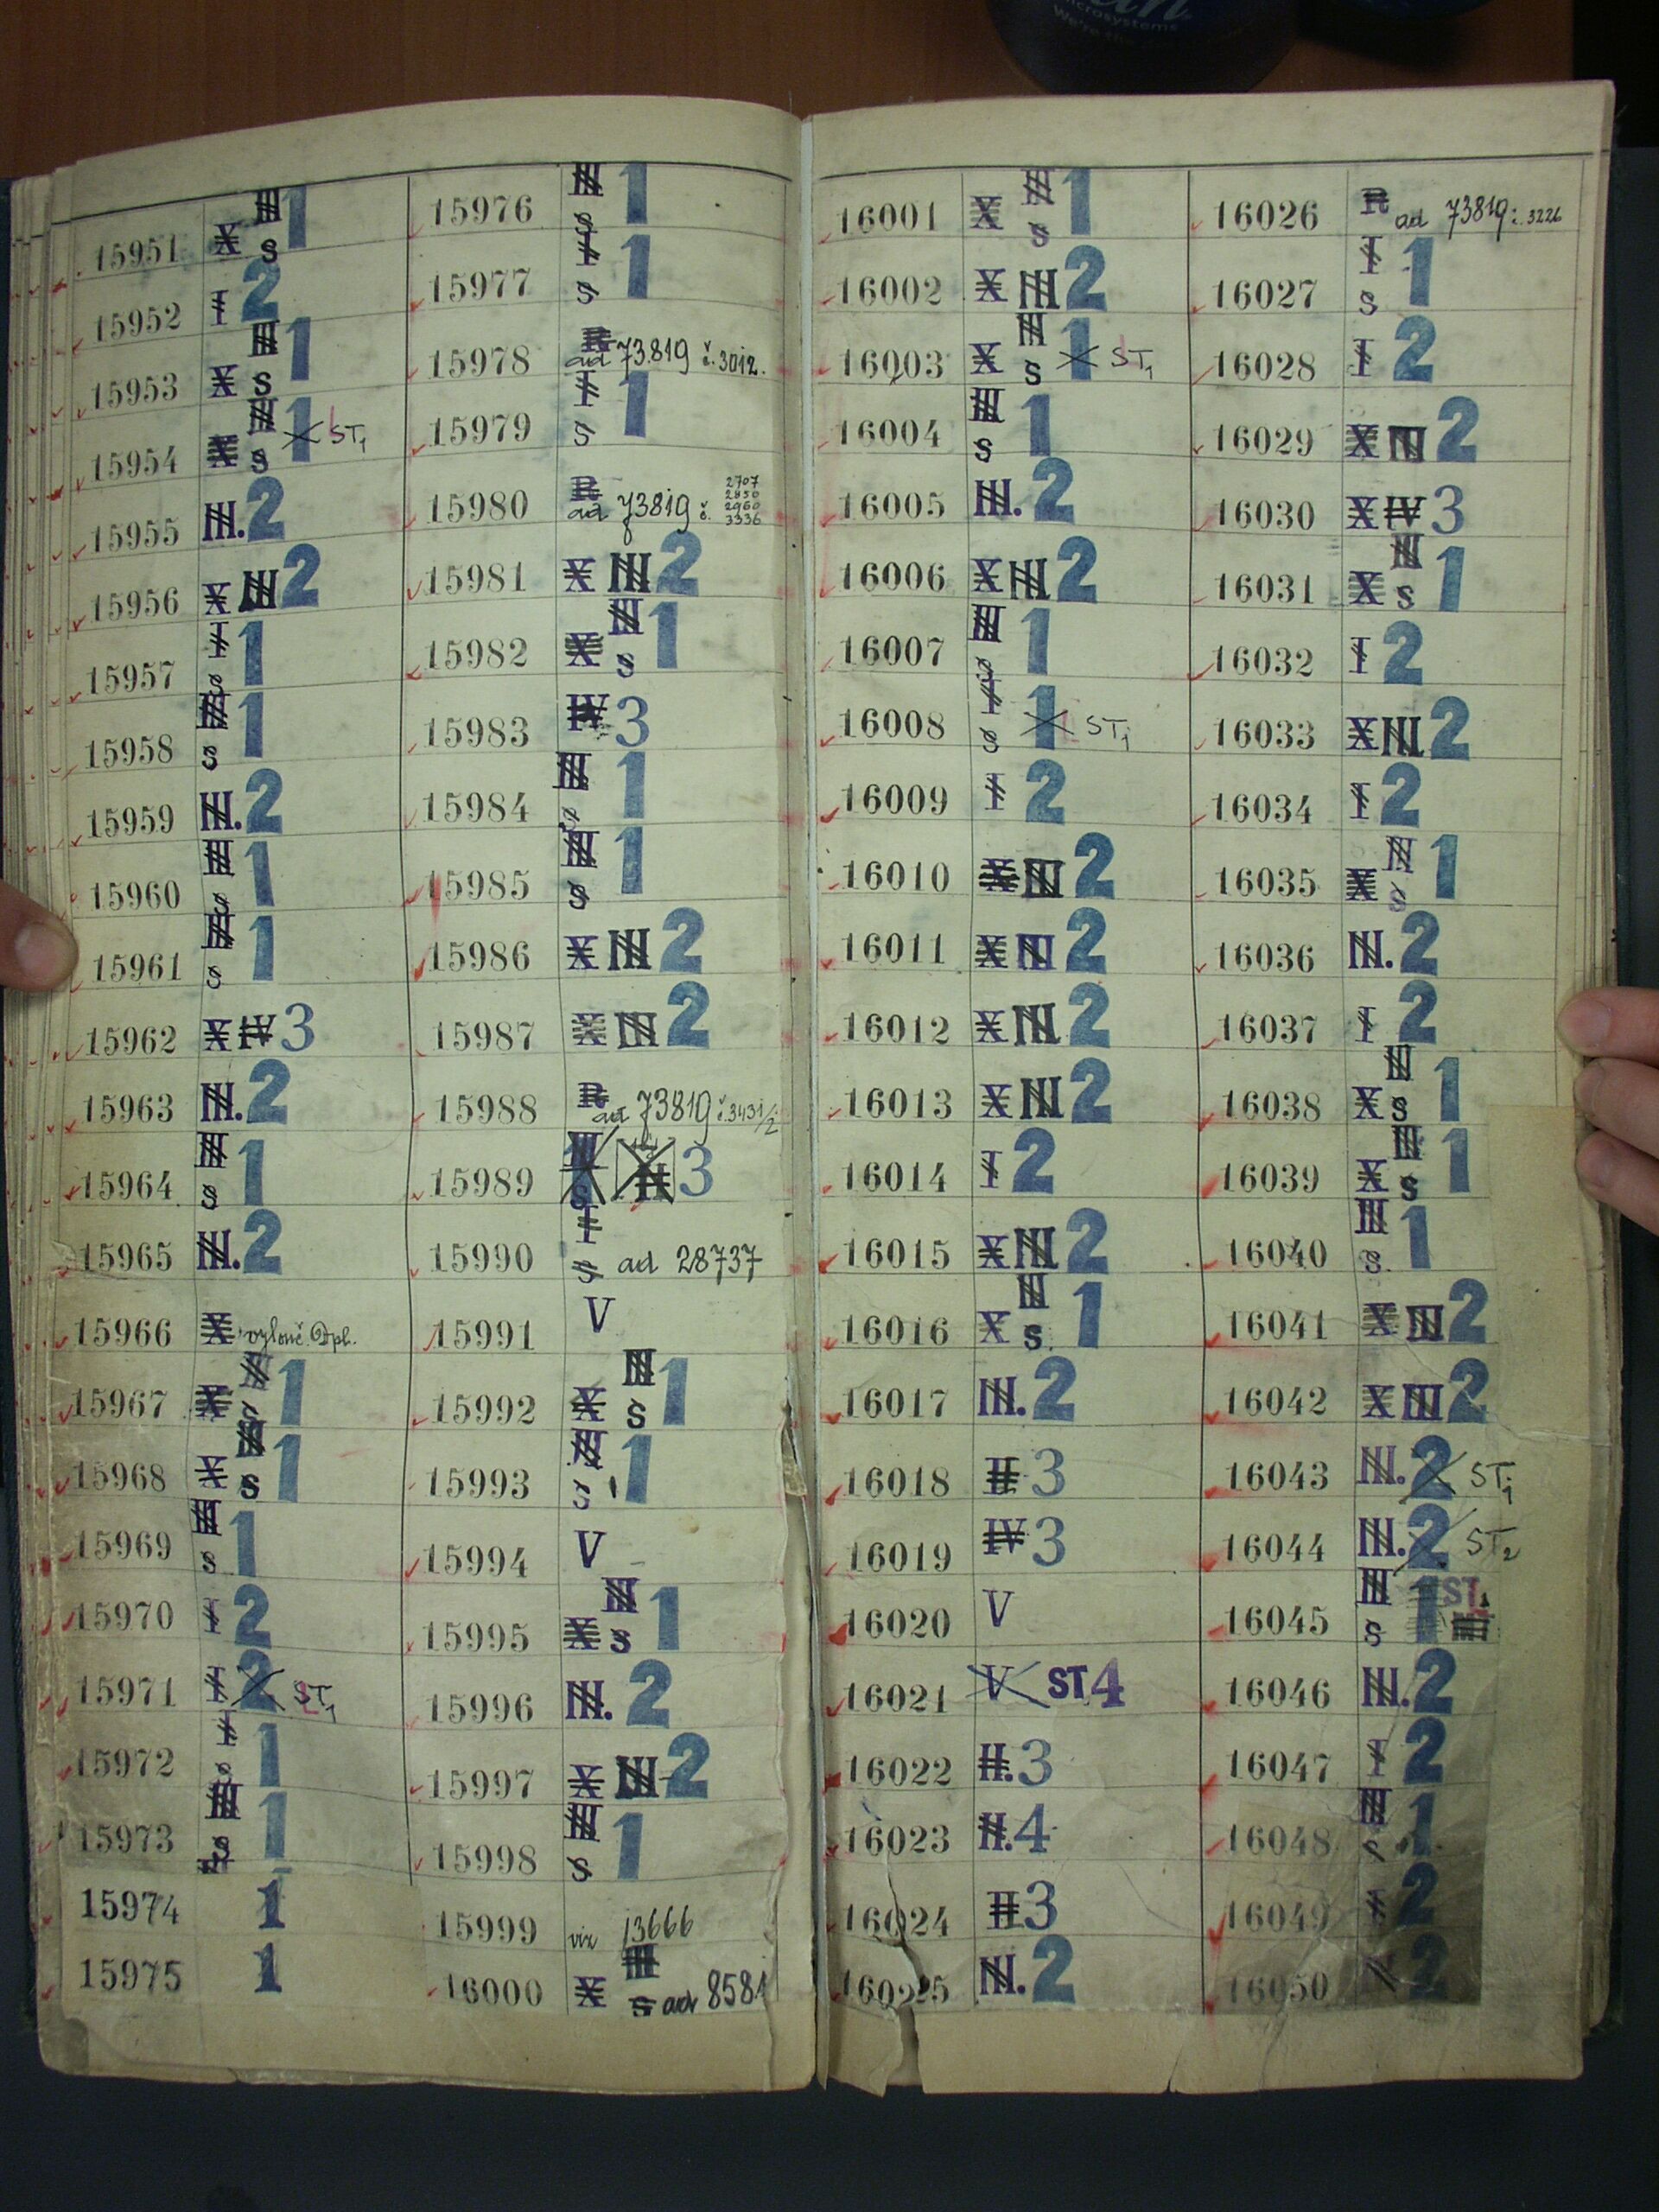 microsystems
We're the
15951 X III s 1
15952 I 2
15953 X III s 1
15954 X III s 1 ST1
15955 III. 2
15956 X III 2
15957 I s 1
15958 III s 1
15959 III. 2
15960 III s 1
15961 III s 1
15962 X IV 3
15963 III. 2
15964 III s 1
15965 III. 2
15966 X vylouč. Dpl.
15967 X III s 1
15968 X III s 1
15969 III s 1
15970 I 2
15971 I 2 ST1
15972 I s 1
15973 III s 1
15974 1
15975 1
15976 III s 1
15977 I s 1
15978 R ad 73.819 č. 3012.
15979 I s 1
15980 R ad 73819 č. 2707 2850 2960 3336
15981 X III 2
15982 X III s 1
15983 IV 3
15984 III s 1
15985 III s 1
15986 X III 2
15987 X III 2
15988 R ad 73819 č. 3431/2
15989 III s II 3
15990 I s ad 28737
15991 V
15992 X III s 1
15993 III s 1
15994 V
15995 X III s 1
15996 III. 2
15997 X III 2
15998 III s 1
15999 viz 13666
16000 X III s ad 8581
16001 X III s 1
16002 X III 2
16003 X III s 1 ST1
16004 III s 1
16005 III. 2
16006 X III 2
16007 III s 1
16008 I s 1 ST1
16009 I 2
16010 X III 2
16011 X III 2
16012 X III 2
16013 X III 2
16014 I 2
16015 X III 2
16016 X III s 1
16017 III. 2
16018 II 3
16019 IV 3
16020 V
16021 V ST. 4
16022 II. 3
16023 II. 4
16024 II 3
16025 III. 2
16026 R ad 73819 č. 3226
16027 I s 1
16028 I 2
16029 X III 2
16030 X IV 3
16031 X III s 1
16032 I 2
16033 X III 2
16034 I 2
16035 X III s 1
16036 III. 2
16037 I 2
16038 X III s 1
16039 X III s 1
16040 III s 1
16041 X III 2
16042 X III 2
16043 III. 2 ST1
16044 III. 2 ST2
16045 III s 1 ST.
16046 III. 2
16047 I 2
16048 III s 1
16049 I 2
16050 2